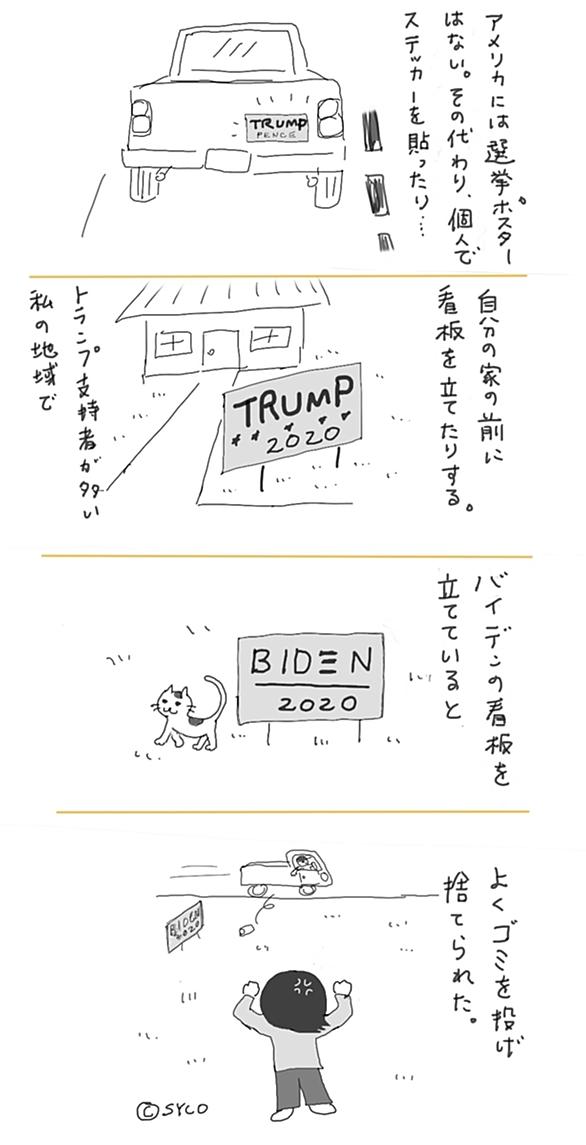 アメリカには選挙ポスター
はない。その代わり、個人で
ステッカーを貼ったり…
TRUMP
PENCE
自分の家の前に
看板を立てたりする。
TRUMP
2020
トランプ支持者が多い
私の地域で
バイデンの看板を
立てていると
BIDEN
2020
よくゴミを投げ
捨てられた。
BIDEN
2020
©SYCO